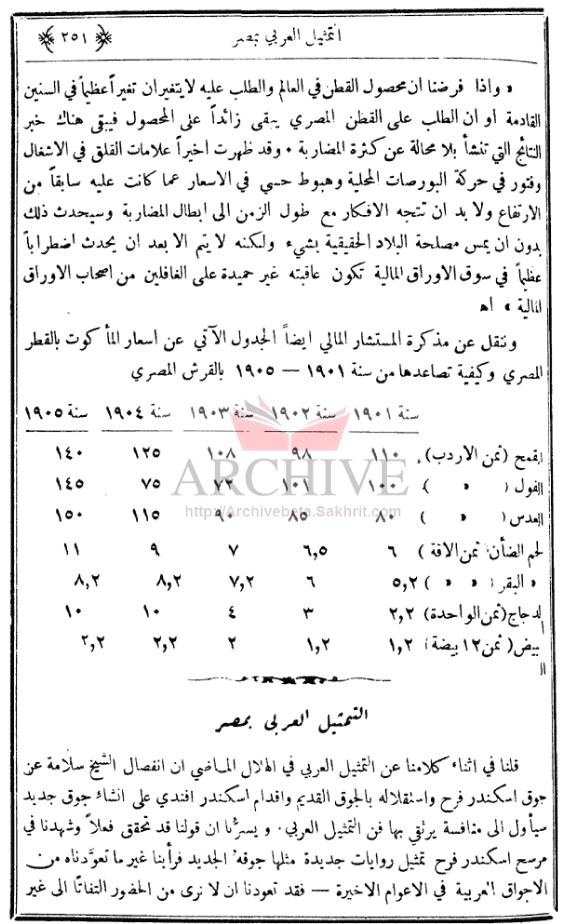 التمثيل العربي بمصر ﴿ ٢٥١ ﴾
« واذا فرضنا ان محصول القطن في العالم والطلب عليه لا يتغيران تغيراً عظيماً في السنين
القادمة او ان الطلب على القطن المصري يبقى زائداً على المحصول فيبقى هناك خبر
النتائج التي تنشأ بلا محالة عن كثرة المضاربة ٠ وقد ظهرت اخيراً علامات القلق في الاشغال
وفتور في حركة البورصات المحلية وهبوط حسي في الاسعار عما كانت عليه سابقاً من
الارتفاع ولا بد ان تتجه الافكار مع طول الزمن الى ابطال المضاربة وسيحدث ذلك
بدون ان يمس مصلحة البلاد الحقيقية بشيء ولكنه لا يتم الا بعد ان يحدث اضطراباً
عظيماً في سوق الاوراق المالية تكون عاقبته غير حميدة على الغافلين من اصحاب الاوراق
المالية » اه
وننقل عن مذكرة المستشار المالي ايضاً الجدول الآتي عن اسعار المأكوت بالقطر
المصري وكيفية تصاعدها من سنة ١٩٠١ — ١٩٠٥ بالقرش المصري
سنة ١٩٠١ سنة ١٩٠٢ سنة ١٩٠٣ سنة ١٩٠٤ سنة ١٩٠٥
القمح (ثمن الاردب) ١١٠ ٩٨ ١٠٨ ١٢٥ ١٤٠
الفول ( » ) ١٠٠ ١٠١ ٧٢ ٧٥ ١٤٥
العدس ( » ) ٨٠ ٨٥ ٩٠ ١١٥ ١٥٠
لحم الضأن (ثمن الاقة) ٦ ٦,٥ ٧ ٩ ١١
« البقر ( » » ) ٥,٢ ٦ ٧,٢ ٨,٢ ٨,٢
الدجاج (ثمن الواحدة) ٢,٢ ٣ ٤ ١٠ ١٠
البيض (ثمن ١٢ بيضة) ١,٢ ١,٢ ٢ ٢,٢ ٢,٢
ARCHIVE
http://Archivebeta.Sakhrit.com
التمثيل العربي بمصر
قلنا في اثناء كلامنا عن التمثيل العربي في الهلال الماضي ان انفصال الشيخ سلامة عن
جوق اسكندر فرح واستقلاله بالجوق القديم واقدام اسكندر افندي على انشاء جوق جديد
سيأول الى منافسة يرتقي بها فن التمثيل العربي ٠ ويسرنا ان قولنا قد تحقق فعلاً وشهدنا في
مرسح اسكندر فرح تمثيل روايات جديدة مثلها جوقه الجديد فرأينا غير ما تعوّدناه من
الاجواق العربية في الاعوام الاخيرة — فقد تعودنا ان لا نرى من الحضور التفاتاً الى غير